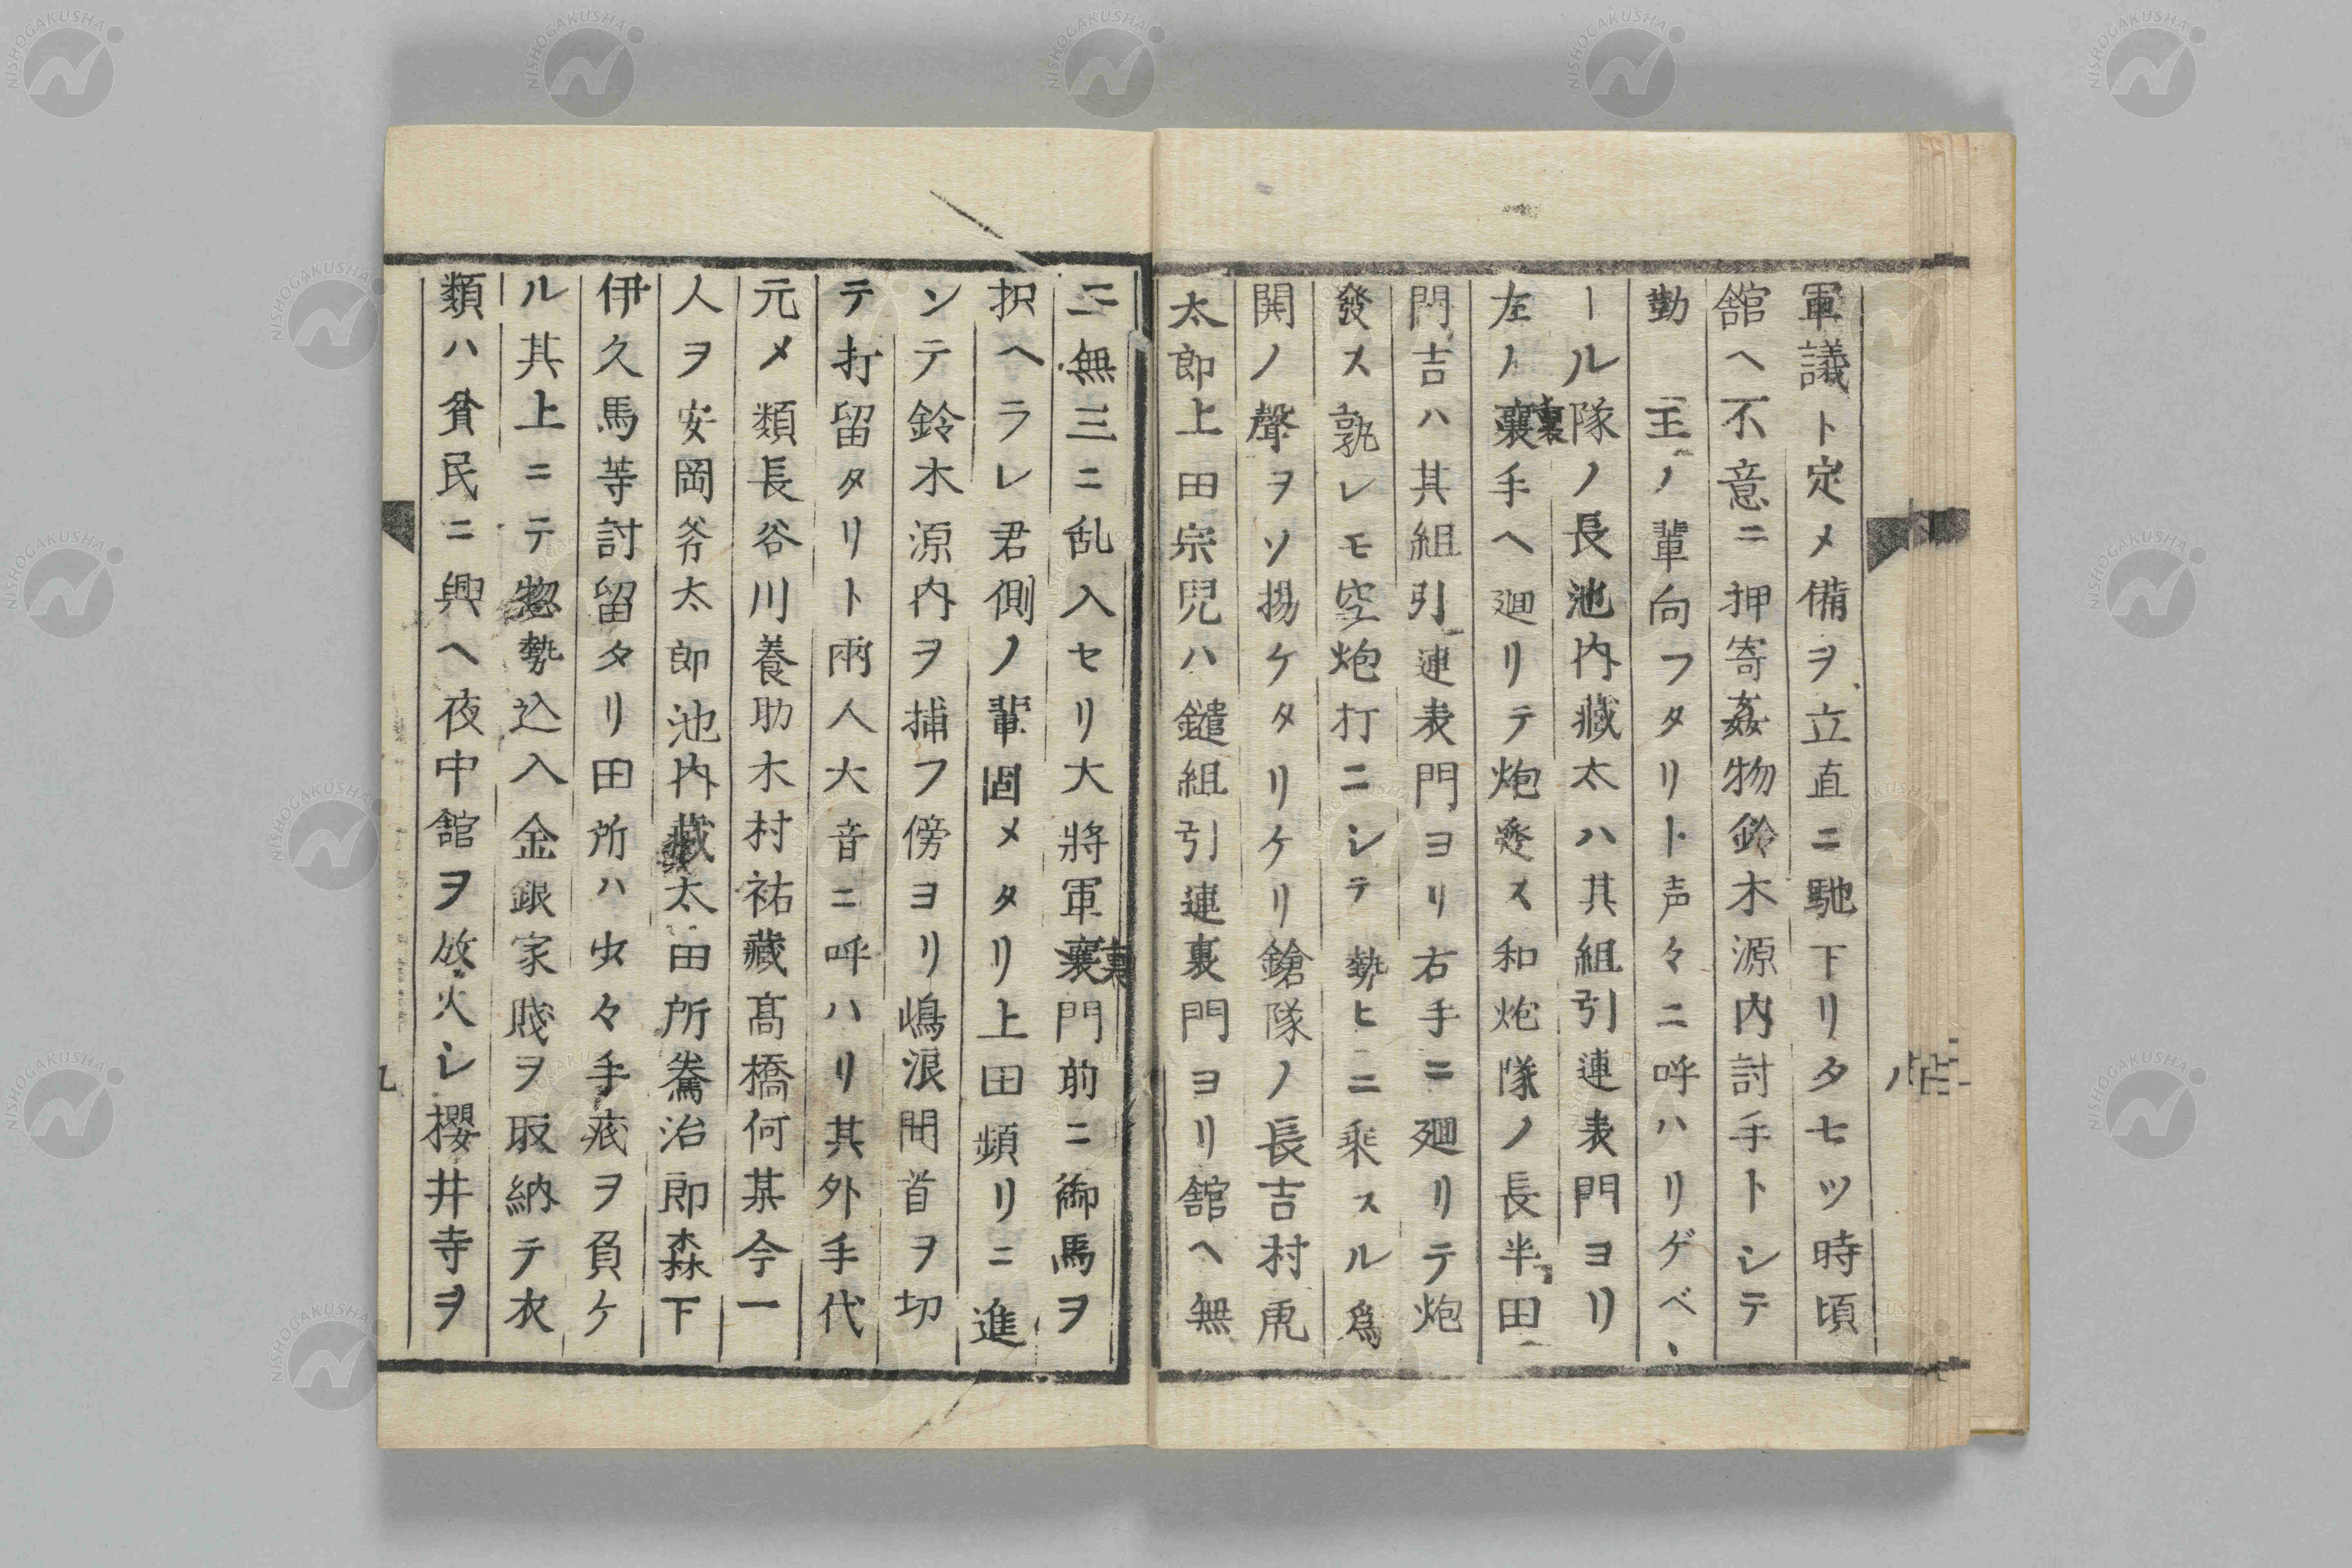 軍議ト定メ備ヲ立直ニ馳下リタセツ時頃
舘ヘ不意ニ押寄姦物鈴木源内討手トシテ
勤　王ノ輩向フタリト声々ニ呼ハリゲベヽ
ール隊ノ長池内藏太ハ其組引連表門ヨリ
左ノ裏手ヘ廻リテ炮發ス和炮隊ノ長半田
門吉ハ其組引連表門ヨリ右手ニ廻リテ炮
發ス孰レモ空炮打ニシテ勢ヒニ乗スル爲
開ノ聲ヲソ揚ケタリケリ鎗隊ノ長吉村虎
太郎上田宗児ハ鑓組引連裏門ヨリ舘ヘ無
二無三ニ乱入セリ大將軍裏門前ニ御馬ヲ
扣ヘラレ君側ノ輩固メタリ上田頻リニ進
ンテ鈴木源内ヲ捕フ傍ヨリ嶋浪間首ヲ切
テ打留タリト兩人大音ニ呼ハリ其外手代
元メ類長谷川養助木村祐藏髙橋何某今一
人ヲ安岡斧太郎池内藏太田所騰治郎森下
伊久馬等討留タリ田所ハ少々手疵ヲ負ケ
ル其上ニテ惣勢込入金銀家賤ヲ取納テ衣
類ハ貧民ニ興ヘ夜中舘ヲ放火シ櫻井寺ヲ